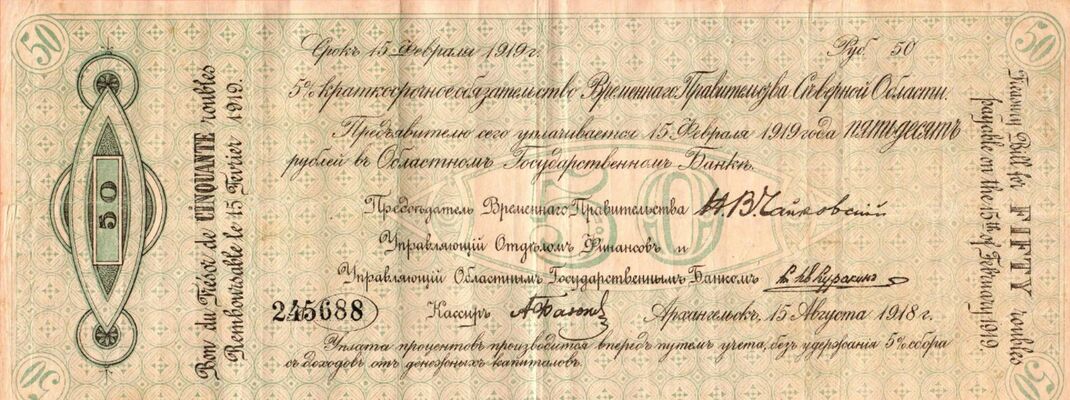 50
50
Срокъ 15 Февраля 1919 г. Руб. 50
5% краткосрочное обязательство Временнаго Правительства Сѣверной Области.
Предъявителю сего уплачивается 15 Февраля 1919 года пятьдесятъ
рублей въ Областномъ Государственномъ Банкѣ.
Предсѣдатель Временнаго Правительства Н. В. Чайковский
Управляющий Отдѣломъ Финансовъ и
Управляющий Областнымъ Государственнымъ Банкомъ
245688 Кассиръ Архангельскъ, 15 Августа 1918 г.
Уплата процентовъ производится впередъ путемъ учета, безъ удержания 5% сбора
съ доходовъ отъ денежныхъ капиталовъ.
50
Bon du Trésor de CINQUANTE roubles
Remboursable le 15 Fevrier 1919.
50
Treasury Bill for FIFTY roubles
payable on the 15th of February 1919.
50
50
50